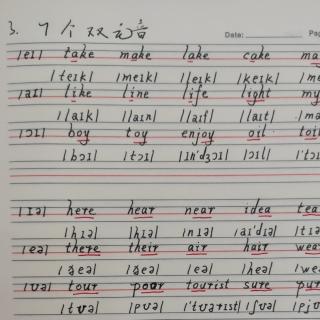 3. 7个双元音
Date:
/eɪ/ take make lake cake
/teɪk/ /meɪk/ /leɪk/ /keɪk/
/aɪ/ like line life light my
/laɪk/ /laɪn/ /laɪf/ /laɪt/ /ma
/ɔɪ/ boy toy enjoy oil
/bɔɪ/ /tɔɪ/ /ɪn'dʒɔɪ/ /ɔɪl/
/ɪə/ here hear near idea
/hɪə/ /hɪə/ /nɪə/ /aɪ'dɪə/
/eə/ there their air hair
/ðeə/ /ðeə/ /eə/ /heə/
/ʊə/ tour poor tourist sure
/tʊə/ /pʊə/ /'tʊərɪst/ /ʃʊə/